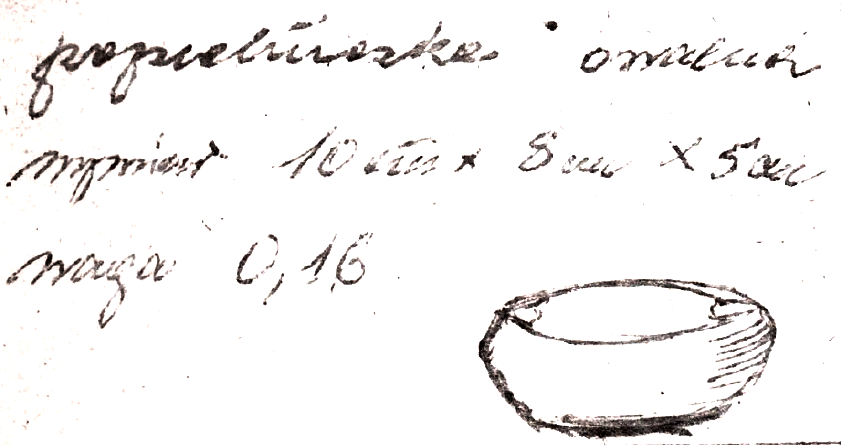 popielniczka owalna
wymiar 10 cm x 8 cm x 5 cm
waga 0,16